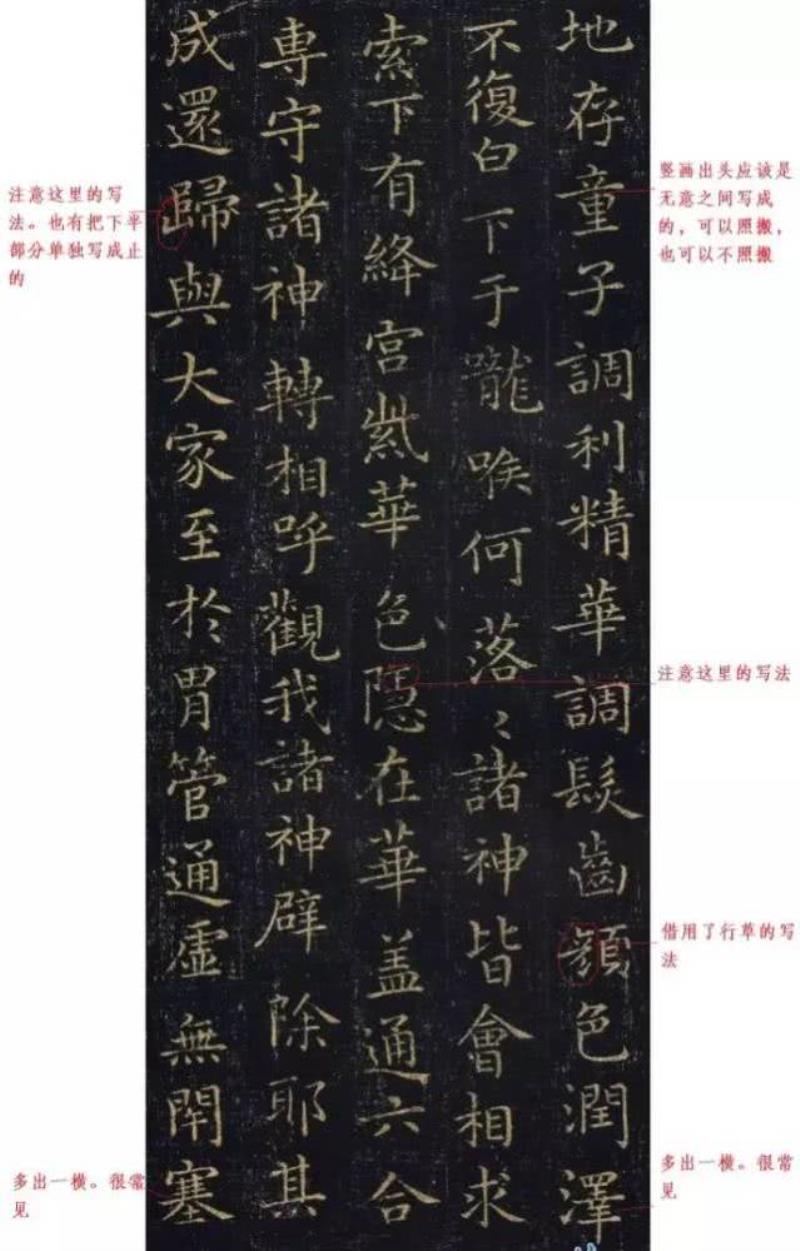 地存童子調利精華調髮齒顔色潤澤
不復白下于嚨喉何落〻諸神皆會相求
索下有絳宮紫華色隱在華盖通六合
專守諸神轉相呼觀我諸神辟除耶其
成還歸與大家至於胃管通虛無閇塞
竖画出头应该是
无意之间写成
的，可以照搬，
也可以不照搬
注意这里的写法
借用了行草的写
法
多出一横。很常
见
注意这里的写
法。也有把下半
部分单独写成止
的
多出一横。很常
见